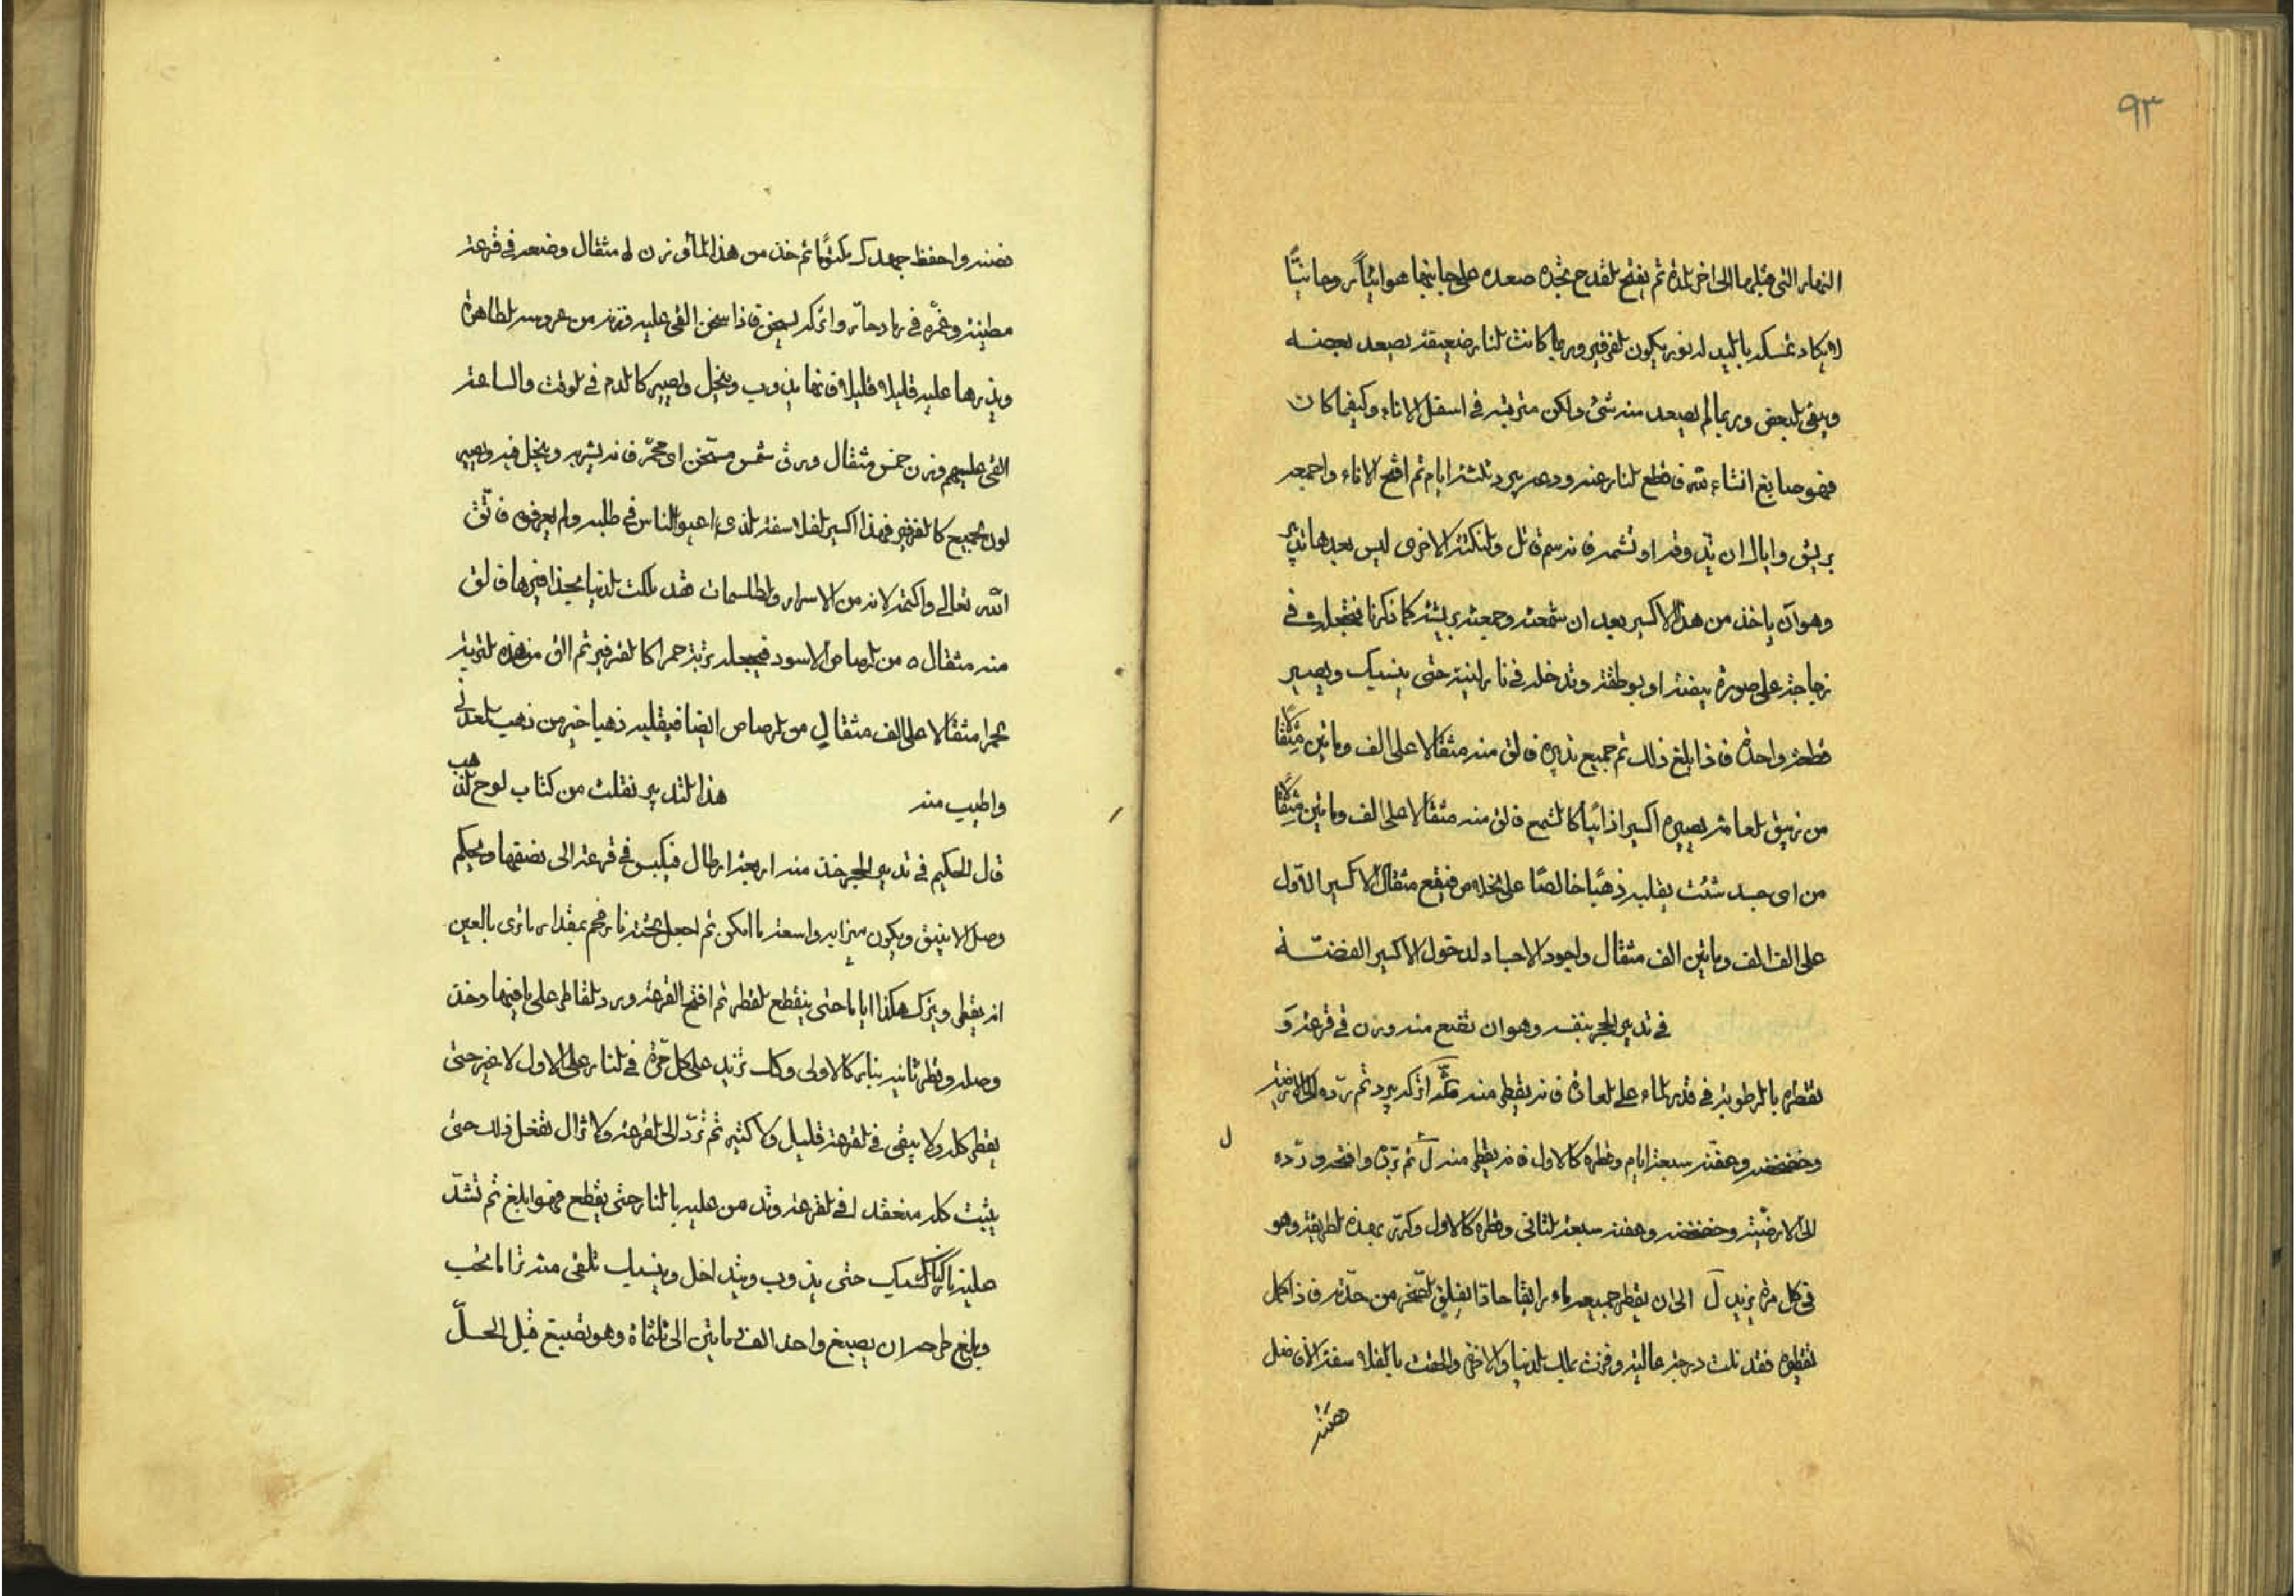 ٩٣
النهار التي قبلها الى اخر المدة ثم يفتح القدح تجده صعده على جانبها هوائياً روحانيًّا
لا يكاد تمسكه باليد له نور يكون الفرفير وربما كانت النار ضعيفة يصعد بعضه
ويبقى البعض وربما لم يصعد منه شئ ولكن متربة في اسفل الاناء وكيفما كان
فهو صابغ انشاء الله فاقطع النار عنه ودعه يبرد ثلثة ايام ثم افتح الاناء واجمعه
بريش واياك ان تذوقه او تشمه فانه سم قاتل والنكتة الاخرى ليس بعدها تدبير
وهو ان ياخذ من هذا الاكسير بعد ان شمعته وجمعته بريشة كما ذكرنا فتجعله في
زجاجة على صورة بيضة او بوطقة وتدخله في نار لينة حتى ينسبك ويصير
قطعة واحدة فاذا بلغ ذلك تم جميع تدبيره فالق منه مثقالا على الف ومائتين مثقالا
من زيبق العامة يصيره اكسيرا ذائبا كالشمع فالق منه مثقالا على الف ومائتين مثقالا
من اى جسد شئت يقلبه ذهبًا خالصًا على الخلاص فيقع مثقال الاكسير الاول
على الف الف ومائتين الف مثقال واجود الاجساد لدخول الاكسير الفضة
في تدبير الحجر بنفسه وهو ان تقنع منه وزن في قرعة و
تقطره بالرطوبة في قدر الماء على العادة فانه يقطر منه اتركه يبرد ثم رده الى الارضية
وخضخضه وعفنه سبعة ايام وقطره كالاول فانه يقطر منه ل ثم برّده وافتحه وردّه
ل
الى الارضيّة وخضخضه وعفنه سبعة الثانى وقطره كالاول وكرّر بهذه الطريقة وهو
في كل مرة يزيد ل الى ان يقطر جميعه ماء رايقا حاذقا يفلق الصخر من حدّته فاذا كمل
تقطيره فقد نلت درجة عالية وفزت بملك الدنيا والاخرة والحقت بالفلاسفة الافاضل
فصنه
فصنه واحفظ جهدك مكتومًا ثم خذ من هذا الماء وزن ل مثقال وضعه في قرعة
مطينة وغمّره في رماد حارّ واتركه يسخن فاذا سخن القى عليه وزنه من عروسه الطاهرة
ويذرها عليه قليلا قليلا فانها يذوب وينحل ويصير كالدم في الوقت والساعة
القى عليهم وزن خمس مثقال ورق شمس مسخّن اى محمّر فانه يشربه وينحل فيه ويصير
لون الجميع كالفرفير فهذا اكسير الفلاسفة الذي اعيوا الناس في طلبه ولم يعرفوه فاتّق
الله تعالى واكتمه لانه من الاسرار والطلسمات فقد ملكت الدنيا بحذافيرها فالق
منه مثقال ٥ من الرصاص الاسود فيجعله تربة حمرا كالفرفير ثم الق من هذه التربة
الحمرا مثقالا على الف مثقال من الرصاص ايضا فيقلبه ذهبا خير من ذهب المعدنى
واطيب منه هذا التدبير نقلت من كتاب لوح الذهب
قال الحكيم في تدبير الحجر خذ منه اربعة ارطال فيكبس في قرعة الى نصفها ويحكم
وصل الانبيق ويكون ميزابه واسعة ما امكن ثم اجعل تحته نار فحم بمقدار ما ترى بالعين
انه يقطر ويترك هكذا اياما حتى ينقطع القطر ثم افتح القرعة ورد القاطر على ما فيها وخذ
وصله وقطر ثانيه بنار كالاولى وكك تزيد على كل مرّة في النار على الاول لا غير حتى
يقطر كله ولا يبقى في القرعة قليل ولا كثير ثم تردّ الى القرعة ولا تزال تفعل ذلك حتى
يثبت كله منعقدا في القرعة وتدمن عليه بالنار حتى يقطع فهو ابلغ ثم تشدّ
عليه نار السبك حتى يذوب ويتداخل وينسبك تلقى منه تراما تحب
ويبلغ طرحه ان يصبغ واحد الف ومايتين الى ثلثمأة وهو تصبغ قبل الحلّ